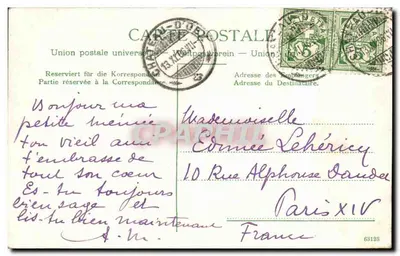 CARTE POSTALE
Union postale universelle Weltpostverein Union
Reserviert für die Korrespondenz
Partie réservée à la Correspondance
Adresse des Empfängers
Adresse du Destinataire.
CHATEAU-D'OEX
5 5
Bonjour ma
petite mémée
ton vieil ami
t'embrasse de
tout son coeur
Es-tu toujours
bien sage et
lis-tu bien maintenant
A.M.
Mademoiselle
Edmée Lehéricy
10 Rue Alphonse Daudet
Paris XIV
France